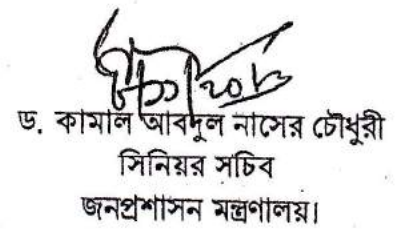 ড. কামাল আবদুল নাসের চৌধুরী
সিনিয়র সচিব
জনপ্রশাসন মন্ত্রণালয়।